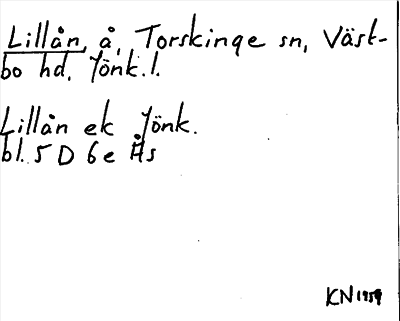 Lillån, å, Torskinge sn, Väst-
bo hd, Jönk. l.
Lillån ek Jönk.
bl. 5 D 6e Ås
KN 1959